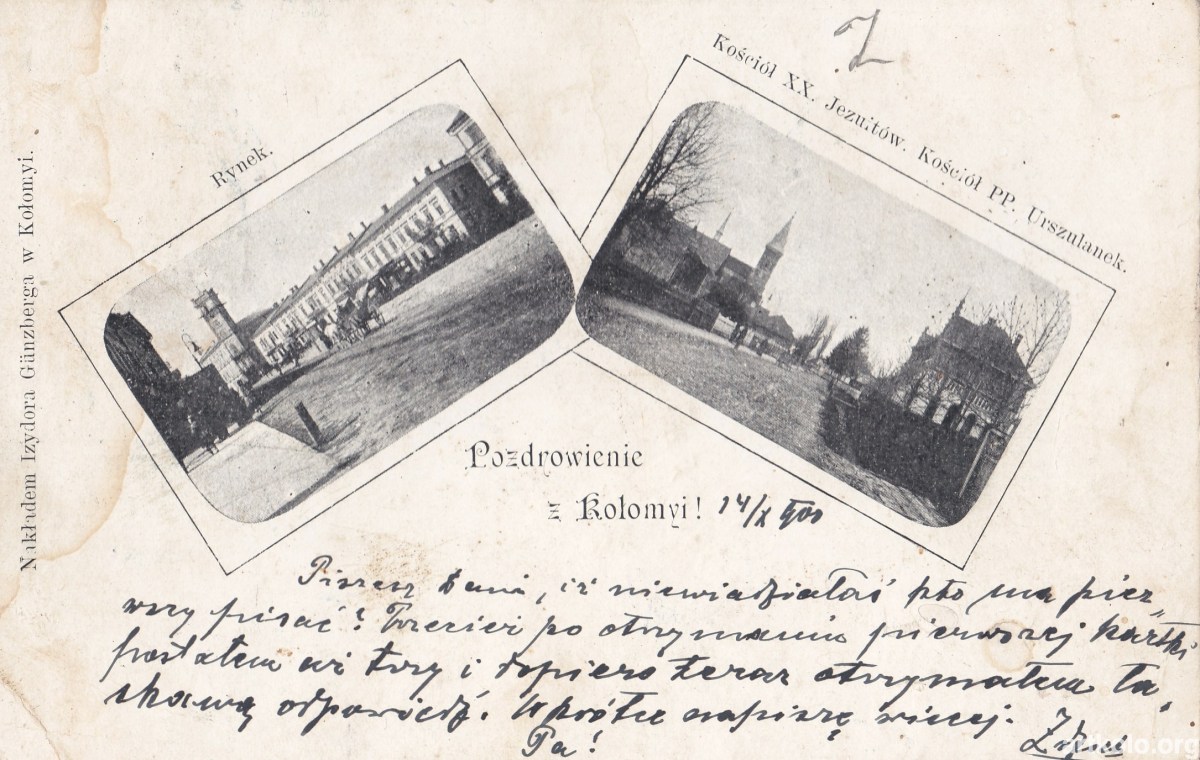 Z
Kościół XX. Jezuitów. Kościół PP. Urszulanek.
Rynek.
Nakładem Izydora Gänzberga w Kołomyi.
Pozdrowienie
z Kołomyi! 14/X 900
Piszesz, iż niewiedziałaś kto ma pier„
wszy pisać? Przecież po otrzymaniu pierwszej kartki
posłałem aż trzy i dopiero teraz otrzymałem ła„
skawą odpowiedź. Wkrótce napiszę więcej.
Pa!
.org